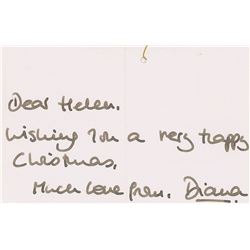 Dear Helen.
Wishing you a very happy
Christmas.
Much love from. Diana